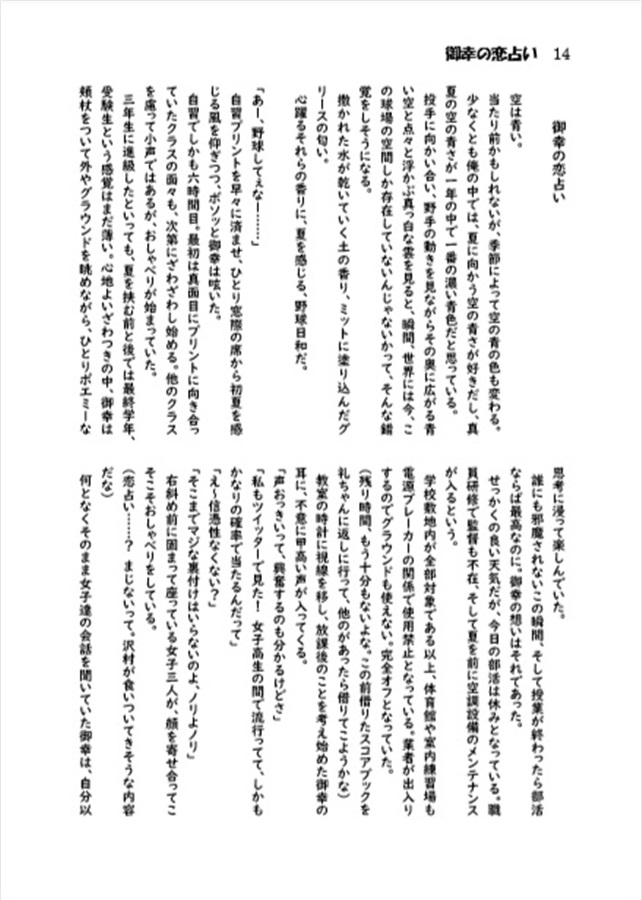 御幸の恋占い 14
御幸の恋占い
空は青い。
当たり前かもしれないが、季節によって空の青の色も変わる。
少なくとも俺の中では、夏に向かう空の青さが好きだし、真
夏の空の青さが一年の中で一番の濃い青色だと思っている。
投手に向かい合い、野手の動きを見ながらその奥に広がる青
い空と点々と浮かぶ真っ白な雲を見ると、瞬間、世界には今、こ
の球場の空間しか存在していないんじゃないかって、そんな錯
覚をしそうになる。
撒かれた水が乾いていく土の香り、ミットに塗り込んだグ
リースの匂い。
心躍るそれらの香りに、夏を感じる、野球日和だ。
「あー、野球してぇな―……」
自習プリントを早々に済ませ、ひとり窓際の席から初夏を感
じる風を仰ぎつつ、ボソッと御幸は呟いた。
自習でしかも六時間目。最初は真面目にプリントに向き合っ
ていたクラスの面々も、次第にざわざわし始める。他のクラス
を慮って小声ではあるが、おしゃべりが始まっていた。
三年生に進級したといっても、夏を挟む前と後では最終学年、
受験生という感覚はまだ薄い。心地よいざわつきの中、御幸は
頬杖をついて外やグラウンドを眺めながら、ひとりポエミーな
思考に浸って楽しんでいた。
誰にも邪魔されないこの瞬間、そして授業が終わったら部活
ならば最高なのに。御幸の想いはそれであった。
せっかくの良い天気だが、今日の部活は休みとなっている。職
員研修で監督も不在、そして夏を前に空調設備のメンテナンス
が入るという。
学校敷地内が全部対象である以上、体育館や室内練習場も
電源ブレーカーの関係で使用禁止となっている。業者が出入り
するのでグラウンドも使えない。完全オフとなっていた。
(残り時間、もう十分もないよな。この前借りたスコアブックを
礼ちゃんに返しに行って、他のがあったら借りてこようかな)
教室の時計に視線を移し、放課後のことを考え始めた御幸の
耳に、不意に甲高い声が入ってくる。
「声おっきいって、興奮するのも分かるけどさ」
「私もツイッターで見た! 女子高生の間で流行ってって、しかも
かなりの確率で当たるんだって」
「え~信憑性なくない?」
「そこまでマジな裏付けはいらないのよ、ノリよノリ」
右斜め前に固まって座っている女子三人が、顔を寄せ合ってこ
そこそおしゃべりをしている。
(恋占い……? まじないって。沢村が食いついてきそうな内容
だな)
何となくそのまま女子達の会話を聞いていた御幸は、自分以